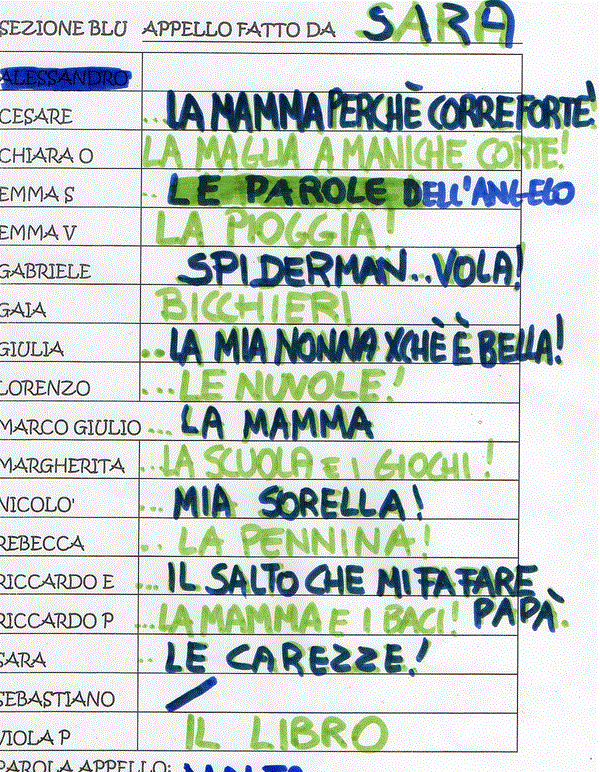 SEZIONE BLU APPELLO FATTO DA SARA
ALESSANDRO
CESARE ... LA MAMMA PERCHÈ CORRE FORTE!
CHIARA O LA MAGLIA A MANICHE CORTE!
EMMA S .. LE PAROLE DELL'ANGELO
EMMA V LA PIOGGIA!
GABRIELE SPIDERMAN..VOLA!
GAIA BICCHIERI
GIULIA .. LA MIA NONNA XCHÈ È BELLA!
LORENZO ... LE NUVOLE!
MARCO GIULIO ... LA MAMMA
MARGHERITA ... LA SCUOLA E I GIOCHI!
NICOLO' ... MIA SORELLA!
REBECCA .. LA PENNINA!
RICCARDO E ... IL SALTO CHE MI FA FARE PAPÀ.
RICCARDO P ... LA MAMMA E I BACI!
SARA ... LE CAREZZE!
SEBASTIANO /
VIOLA P IL LIBRO
PAROLA APPELLO: